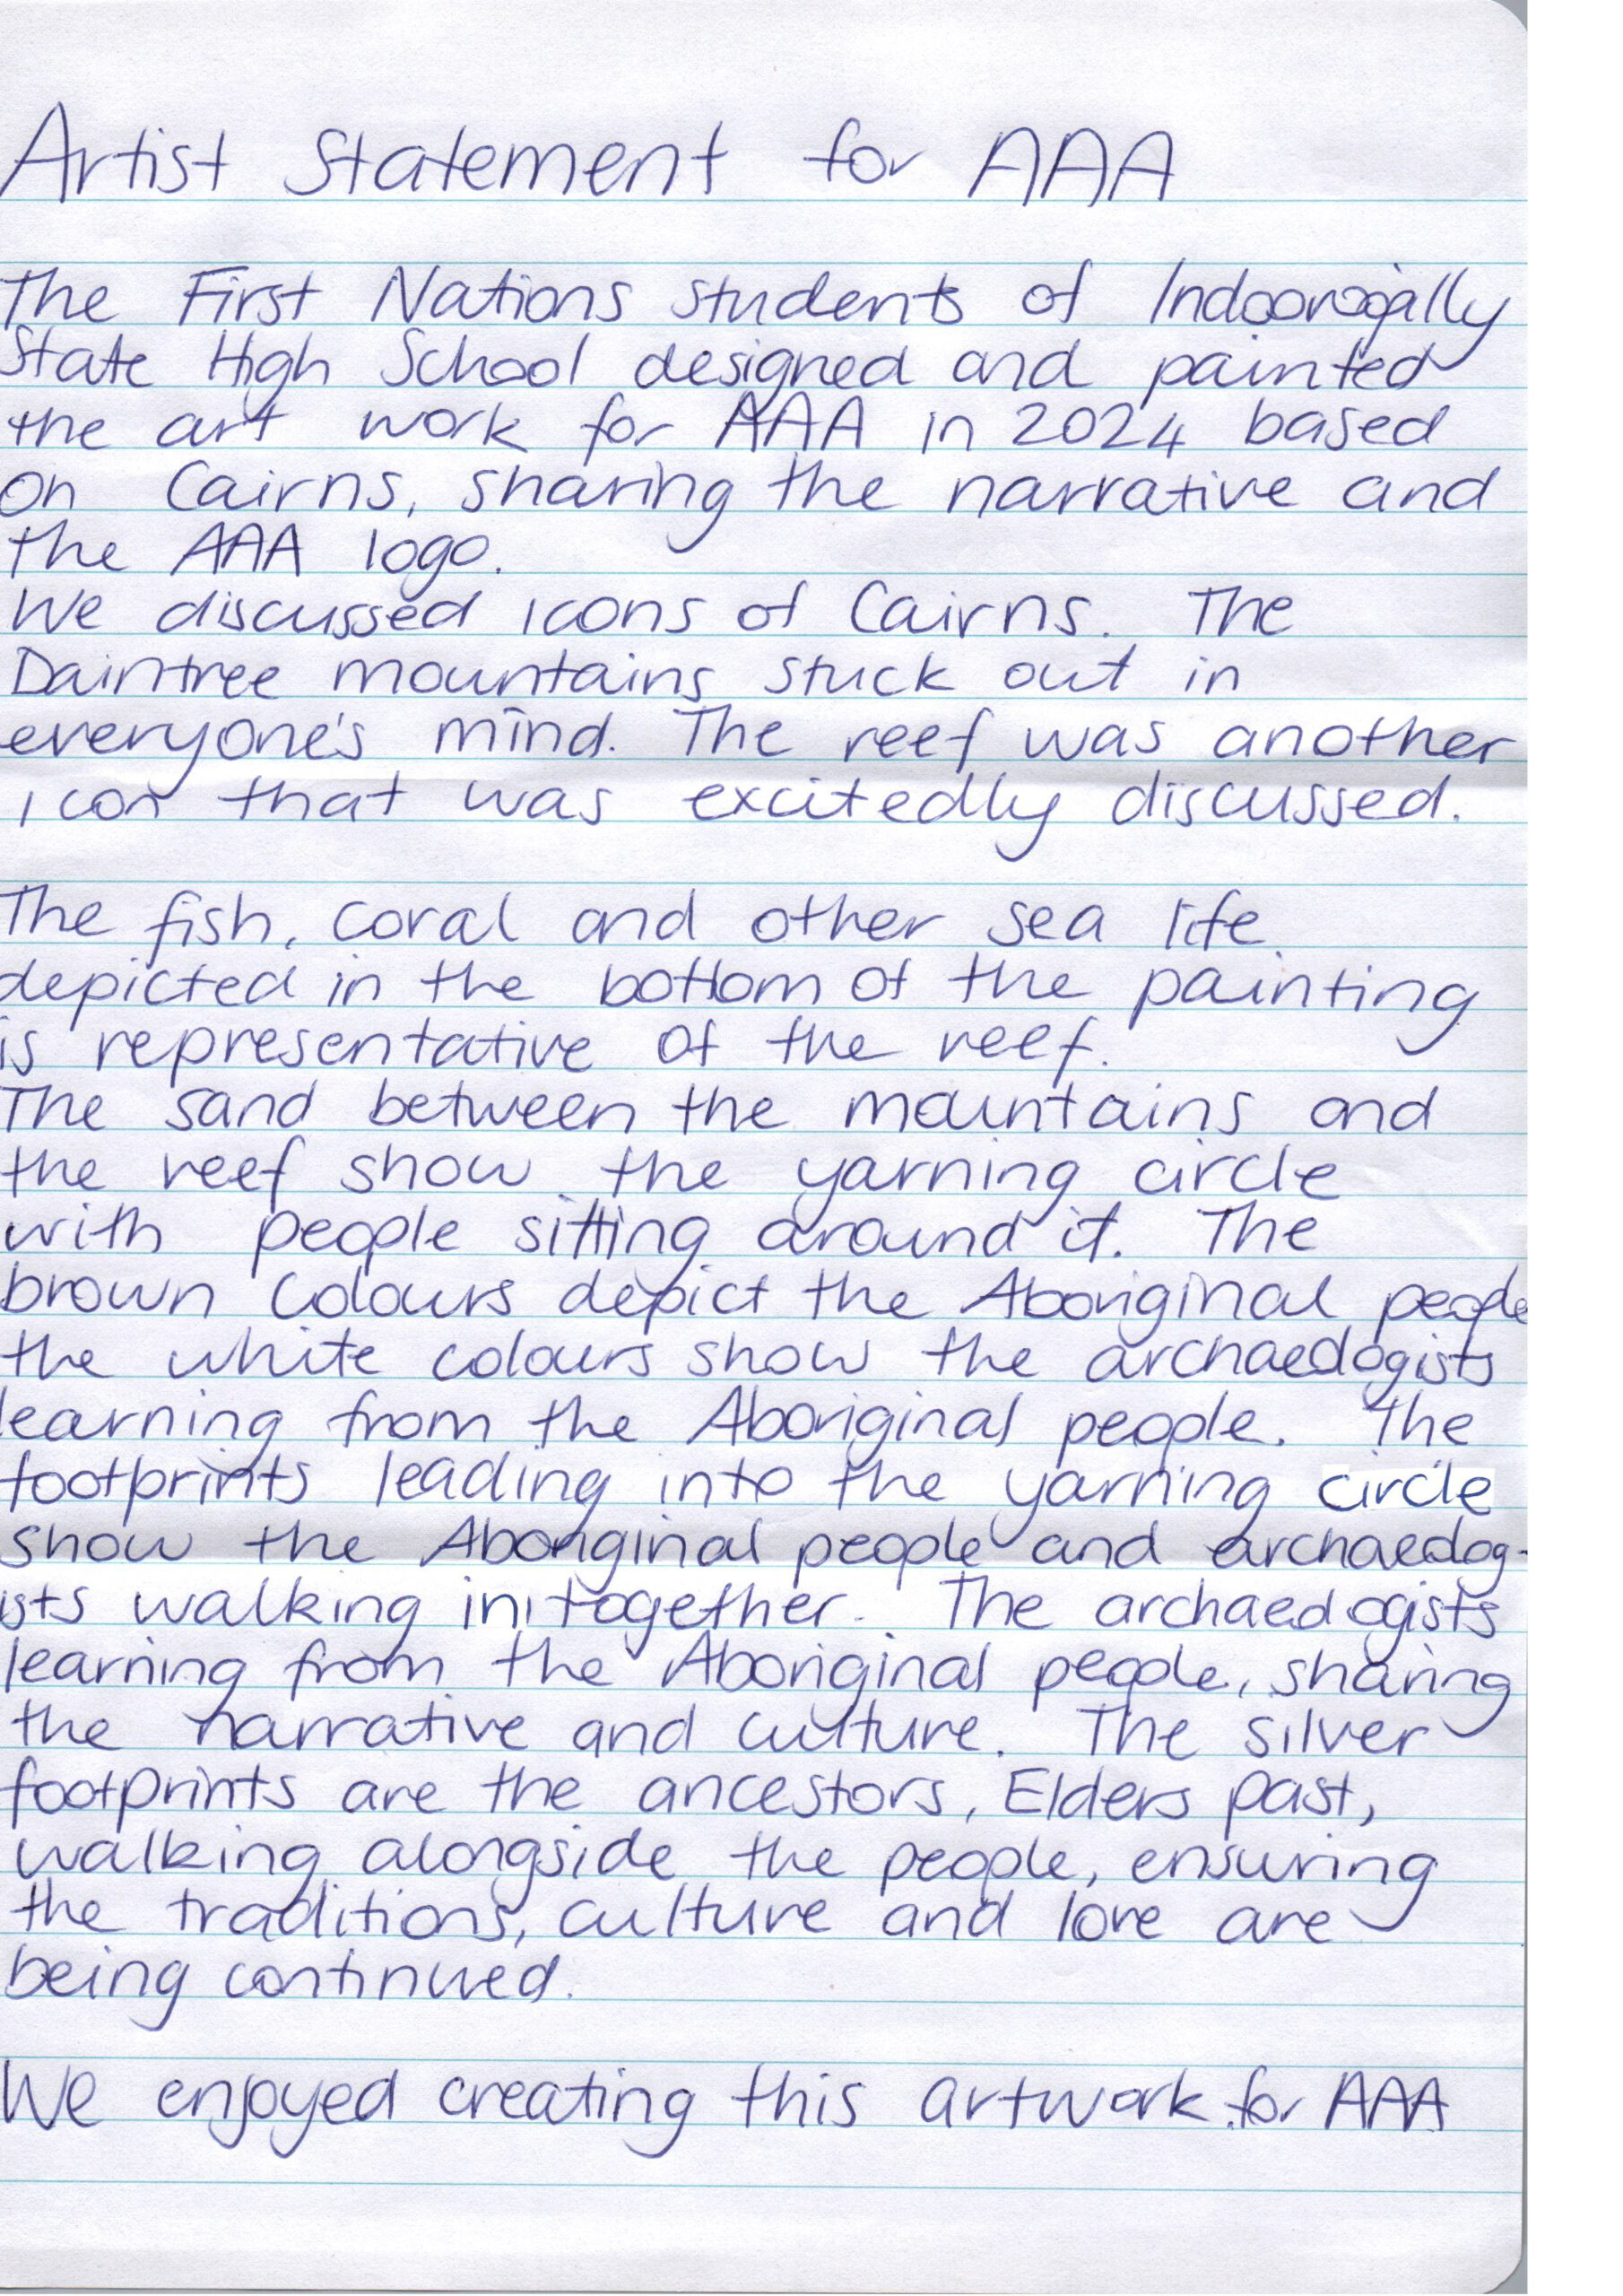 Artist Statement for AAA
The First Nations students of Indooroopilly
State High School designed and painted
the art work for AAA in 2024 based
on Cairns, sharing the narrative and
the AAA logo.
We discussed icons of Cairns. The
Daintree mountains stuck out in
everyone's mind. The reef was another
icon that was excitedly discussed.
The fish, coral and other sea life
depicted in the bottom of the painting
is representative of the reef.
The sand between the mountains and
the reef show the yarning circle
with people sitting around it. The
brown colours depict the Aboriginal people
the white colours show the archaeologists
learning from the Aboriginal people. The
footprints leading into the yarning circle
show the Aboriginal people and archaeolog-
ists walking in together. The archaeologists
learning from the Aboriginal people, sharing
the narrative and culture. The silver
footprints are the ancestors, Elders past,
walking alongside the people, ensuring
the traditions, culture and lore are
being continued.
We enjoyed creating this artwork for AAA